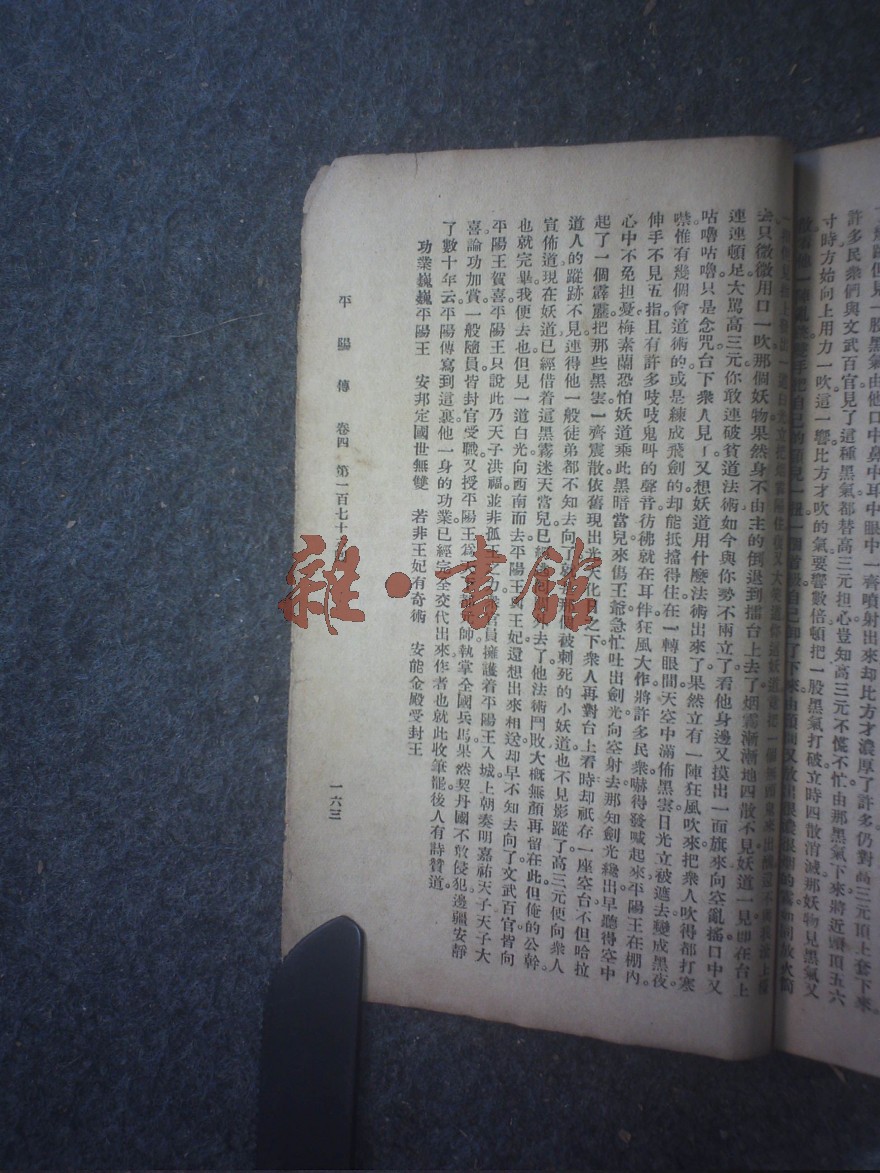 許多民衆們與文武百官見了這種黑氣都替高三元担心豈知高三元不慌不忙由那黑氣下來將近頭頂五六
寸時方始向上用力一吹這一響比方才吹的氣要響數倍頓把一股黑氣打破立時四散消滅那妖物見黑氣又
去只微微用口一吹那個妖物果然身不由主的倒退到擂台上去了烟霧漸漸地四散不見妖道一見卽在台上
連連頓足大罵高三元你敢連破貧道法術如今與你勢不兩立了看他身邊又摸出一面旗來向空亂搖口中又
咕嚕咕嚕只是念咒台下衆人見了又想妖道用什麼法術出來了果然立有一陣狂風吹來把衆人吹得都打寒
噤惟有幾個會道術的或是練成飛劍的却能抵擋得住在一轉眼間天空中滿佈黑雲日光立被遮去變成黑夜
伸手不見五指且有許多吱吱鬼叫的聲音彷彿就在耳伴狂風大作將許多民衆嚇得發喊起來平陽王在棚內
心中不免担憂梅素蘭恐怕妖道乘此黑暗當兒來傷王爺急忙吐出劍光向空射去那知劍光纔出早聽得空中
起了一個霹靂把那些黑雲一齊震散依舊現出光天化日之下衆人再對台上看時却祇存一座空台不但哈拉
道人的蹤跡不見連得他一般徒弟都不知去向了就是那個被刺死的小妖道也不見影蹤了高三元便向衆人
宣佈道現在妖道已經借着這黑霧迷天當兒已經逃到外去了他法術鬥敗大概無顏再留在此但俺的公幹
也就完畢我便去也但見一道白光向西南而去平陽王與王妃還想出來相送却早不知去向了文武百官皆向
平陽王賀喜平陽王只說此乃天子洪福並非孤王之力衆官員擁護着平陽王入城上朝奏明嘉祐天子天子大
喜論功加賞一般隨員皆封官受職又授平陽王爲元帥執掌全國兵馬果然契丹國不敢侵犯邊疆安靜
了數十年云平陽傳寫到這裏他一身的功業已經完全交代出來作者也就此收筆罷後人有詩贊道
功業巍巍平陽王 安邦定國世無雙 若非王妃有奇術 安能金殿受封王
平陽傳 卷四 第一百七十 回 一六三
雜·書館